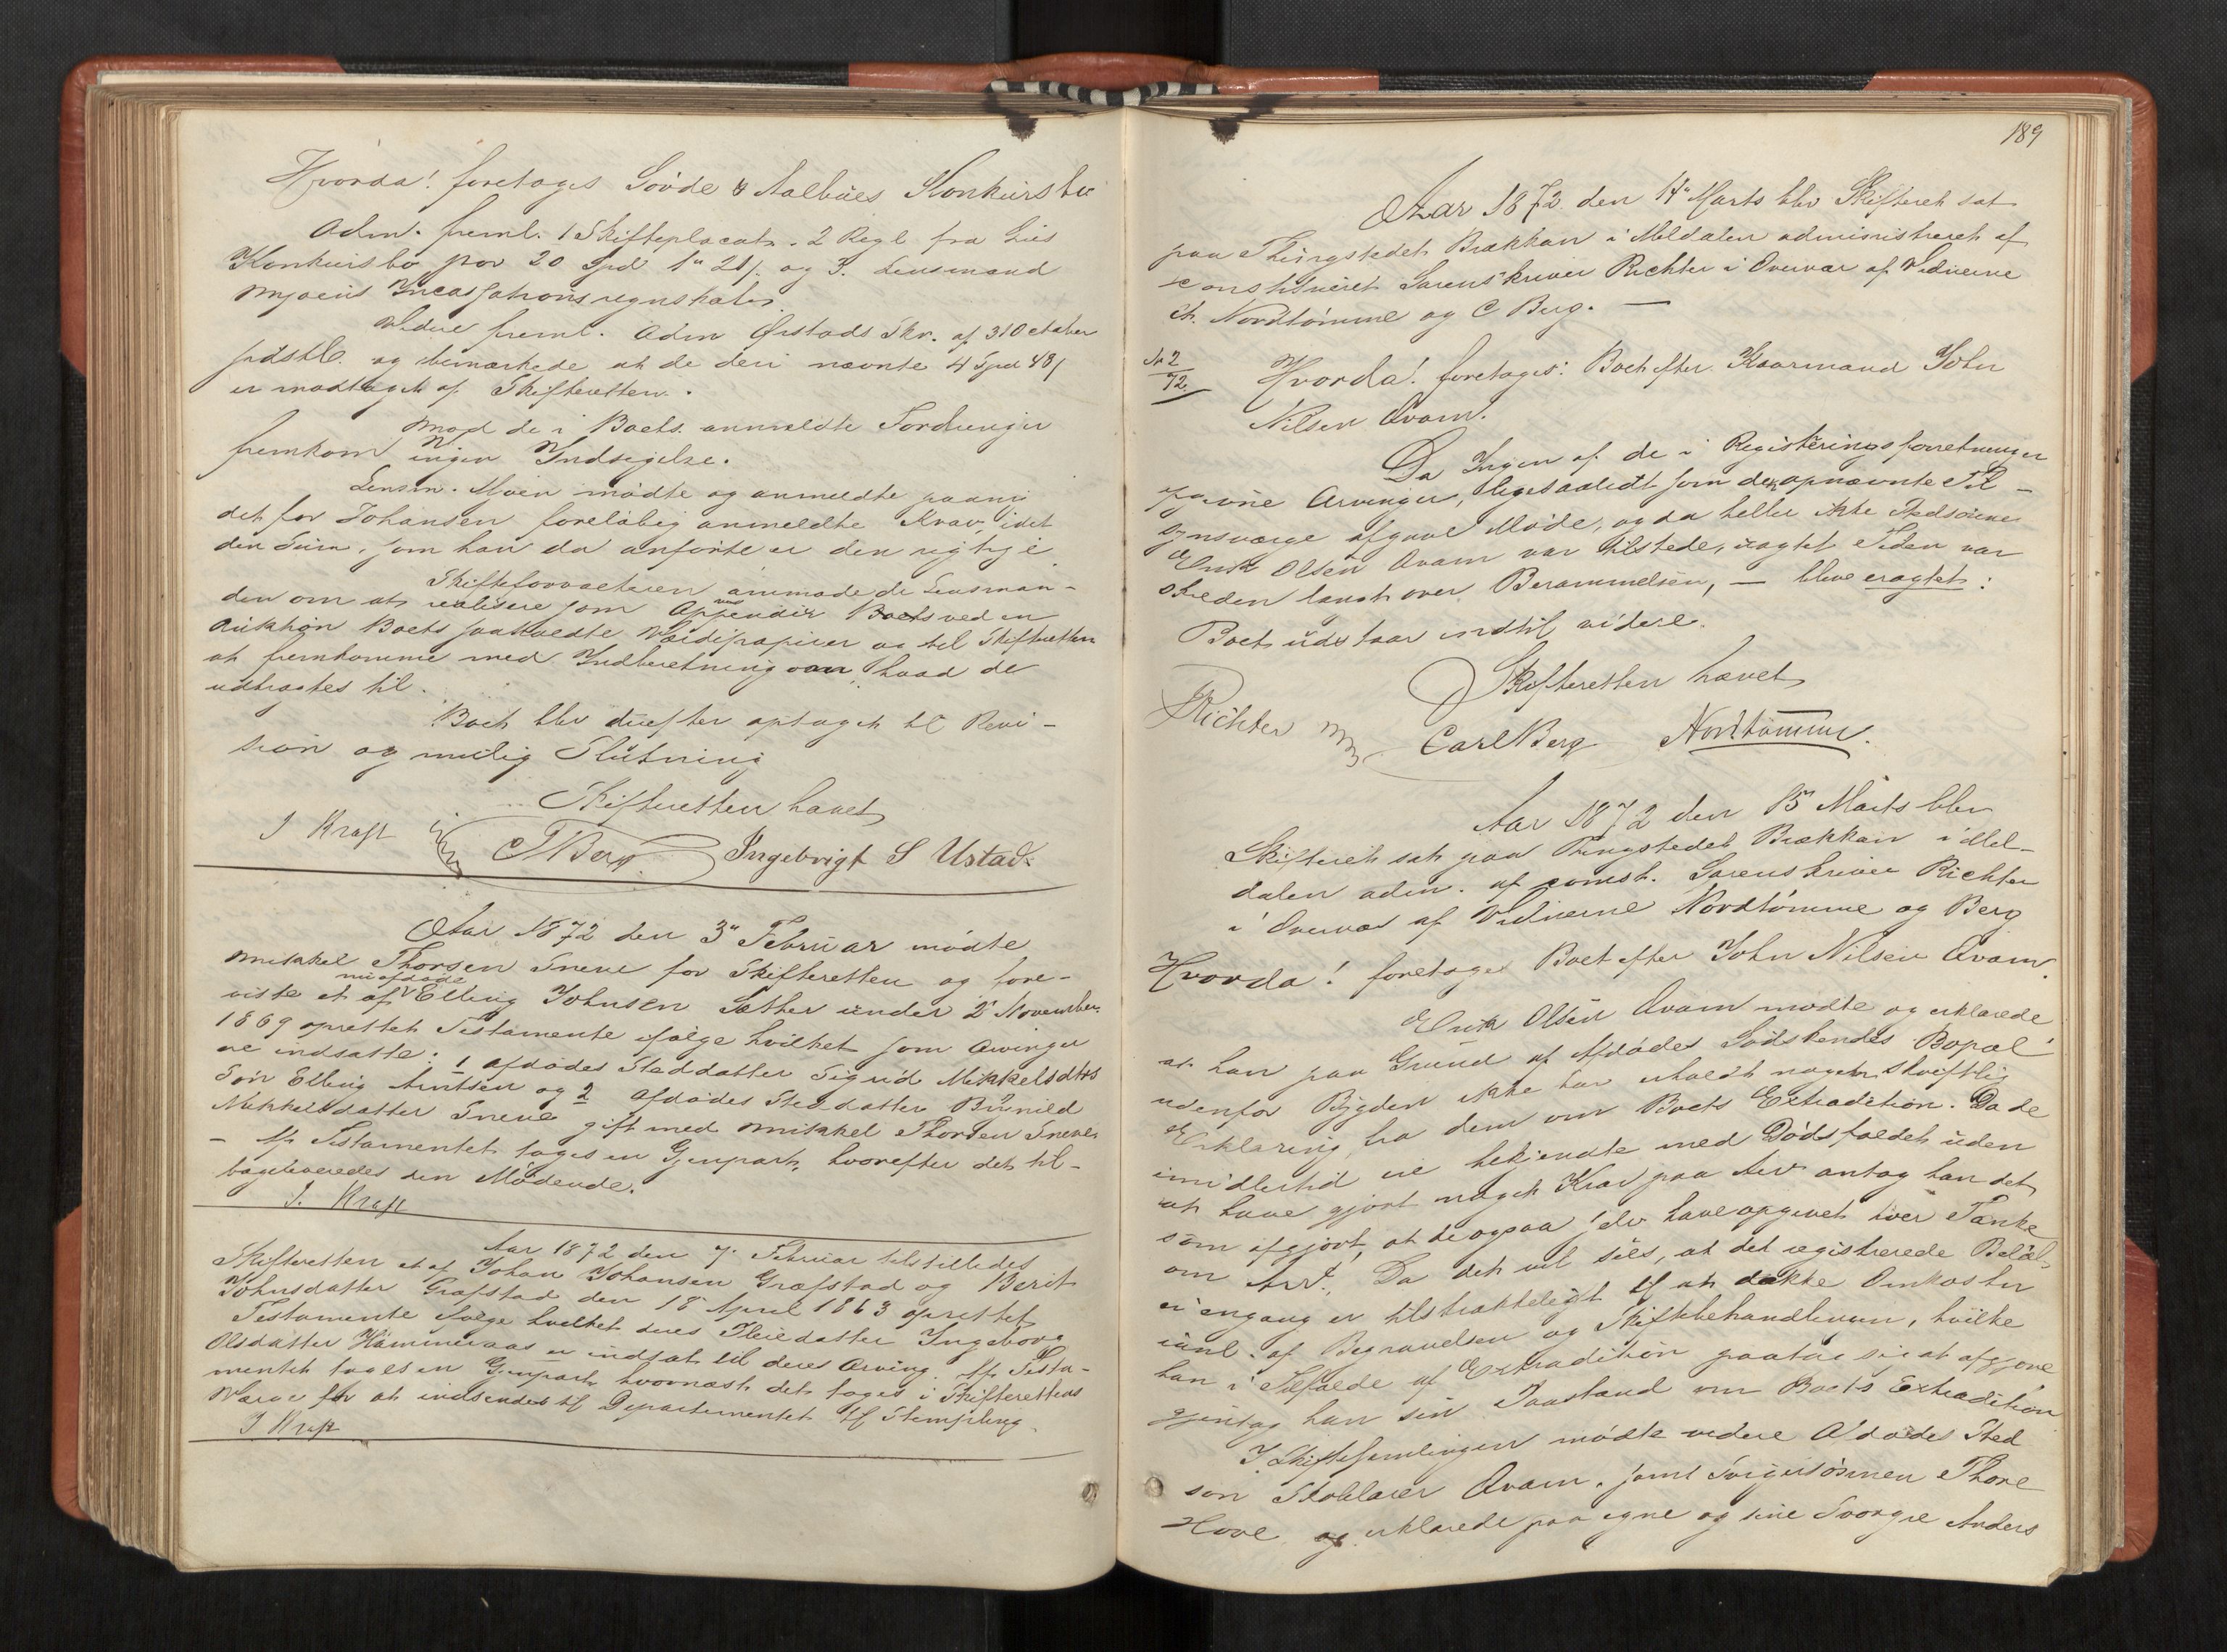 Hvorda! foretoges Løvde & Aalbues Konkursbo
Adm. freml. 1 Skifteplacat. 2 Regl fra
Konkursbo paa 20 Spd 1" 21/. og 3. Lensmand
Incassationsregnskab.
Videre freml. Adm Ørstads Skr. af 31 October
sidstl. og bemærkede at de deri nævnte 4 Spd 48/
er modtaget af Skifteretten.
Mod de i Boets anmeldte Fordringer
fremkom ingen Indsigelse.
Lensm. Moen mødte og anmeldte paany
det for Johansen foreløbig anmeldte Krav, idet
den Sum, som han da anførte er den rigtige
Skifteforvalteren anmodede Lensman-
den om at realisere som Appendix Boets ved en
Auktion Boets paaheftede Værdipapirer og til Skifteretten
at fremkomme med Indberetning om, hvad de
udbragtes til.
Boet blev derefter optaget til Revi-
sion og mulig Slutning
Skifteretten hævet
J Kraft CTBerg Ingebrigt S Ustad.
Aar 1872 den 3" Februar mødte
Mikkel Thorsen Sneve for Skifteretten og fore-
nu afdøde
viste et af Elling Johnsen Sæther under 2 November
1869 oprettet Testamente ifølge hvilket som Arvinger
er indsatte: 1 Afdødes Steddatter Sigrid Mikkelsdtrs
Søn Elling Arntsen og 2 Afdødes Steddatter Brynild
Mikkelsdatter Sneve gift med Mikkel Thorsen Sneve.
– Af Testamentet toges en Gjenpart, hvorefter det til-
bageleveredes den Mødende.
J. Kraft
Aar 1872 den 7. Februar tilstilledes
Skifteretten et af Johan Johansen Grefstad og Berit
Johnsdatter Grefstad den 18 April 1863 oprettet
Testamente ifølge hvilket deres Pleiedatter Ingeborg
Olsdatter Hammeraas er indsat til deres Arving. Af Testa-
mentet toges en Gjenpart hvornæst det toges i Skifterettens
Værge for at indsendes til Departementet til Stempling.
J Kraft
189
Aar 1872 den 14" Marts blev Skifteret sat
paa Thingstedet Brækkan i Meldalen administreret af
constitueret Sorenskriver Richter i Overvær af Vidnerne
Nordtømme og C Berg. —
No 2
72
Hvorda! foretoges: Boet efter Kaarmand John
Nilsen Qvam.
Da Ingen af de i Registreringsforretningen
opgivne Arvinger, ligesaalidt som den opnævnte Til-
synsværge afgave Møde, og da heller ikke Stedsønnen
Erik Olsen Qvam var tilstede, uagtet Tiden var
skreden langt over Berammelsen, — blev eragtet:
Boet udstaar indtil videre.
Skifteretten hævet
Richter Carl Berg Nordtømme.
Aar 1872 den 15" Marts blev
Skifteret sat paa Thingstedet Brækkan i Mel-
dalen adm. af const. Sorenskriver Richter
i Overvær af Vidnerne Nordtømme og Berg
Hvorda! foretoges Boet efter John Nilsen Qvam.
Erik Olsen Qvam mødte og erklærede
at han paa Grund af Afdødes Sødskendes Bopæl
udenfor Bygden ikke har erholdt nogen skriftlig
Erklæring fra dem om Boets Extradition. Da de
imidlertid ere bekjendte med Dødsfaldet uden
at have gjort noget Krav paa Arv antog han det
som afgjort, at de ogsaa selv have opgivet hver Tanke
om Arv. Da det vil sees, at det registrerede Beløb
ei engang er tilstrækkeligt til at dække Omkoster
ianl. af Begravelsen og Skiftebehandlingen, hvilke
han i Tilfælde af Extradition paatog sig at afgjøre
gjentog han sin Paastand om Boets Extradition
I Skiftesamlingen mødte videre Afdødes Sted
søn Qvam, samt Svigersønnen Thore
Hove og erklærede paa egne og sine Svogre Anders